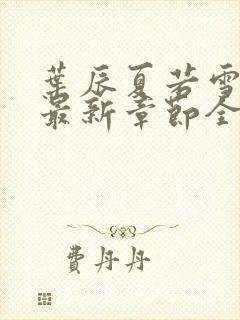 葉辰夏若雪
最新章節全
費丹丹